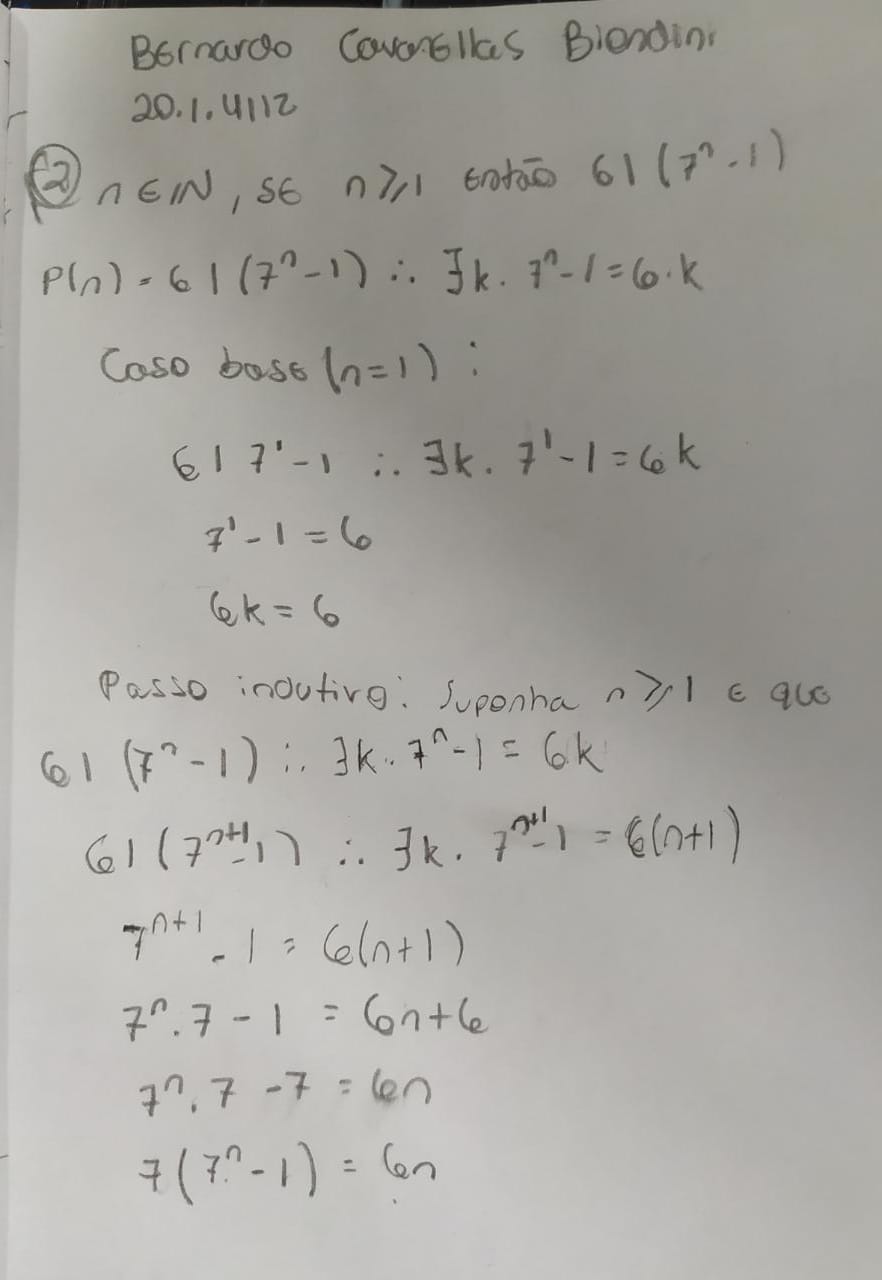 Bernardo Cavanellas Biondini
20.1.4112
2) n ∈ IN, se n ≥ 1 então 6 | (7ⁿ - 1)
P(n) = 6 | (7ⁿ - 1) ∴ ∃k. 7ⁿ - 1 = 6.k
Caso base (n=1) :
6 | 7¹ - 1 ∴ ∃k. 7¹ - 1 = 6k
7¹ - 1 = 6
6k = 6
Passo indutivo: Suponha n ≥ 1 e que
6 | (7ⁿ - 1) ∴ ∃k. 7ⁿ - 1 = 6k
6 | (7ⁿ⁺¹ - 1) ∴ ∃k. 7ⁿ⁺¹ - 1 = 6(n+1)
7ⁿ⁺¹ - 1 = 6(n+1)
7ⁿ . 7 - 1 = 6n+6
7ⁿ . 7 - 7 = 6n
7(7ⁿ - 1) = 6n